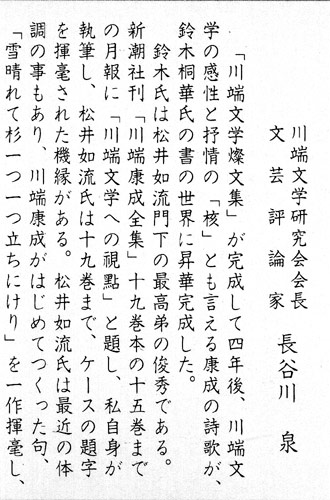 川端文学研究会会長
文芸評論家　長谷川　泉
「川端文学燦文集」が完成して四年後、川端文
学の感性と抒情の「核」とも言える康成の詩歌が、
鈴木桐華氏の書の世界に昇華完成した。
鈴木氏は松井如流門下の最高弟の俊秀である。
新潮社刊「川端康成全集」十九巻本の十五巻まで
の月報に「川端文学への視點」と題し、私自身が
執筆し、松井如流氏は十九巻まで、ケースの題字
を揮毫された機縁がある。松井如流氏は最近の体
調の事もあり、川端康成がはじめてつくった句、
「雪晴れて杉一つ一つ立ちにけり」を一作揮毫し、